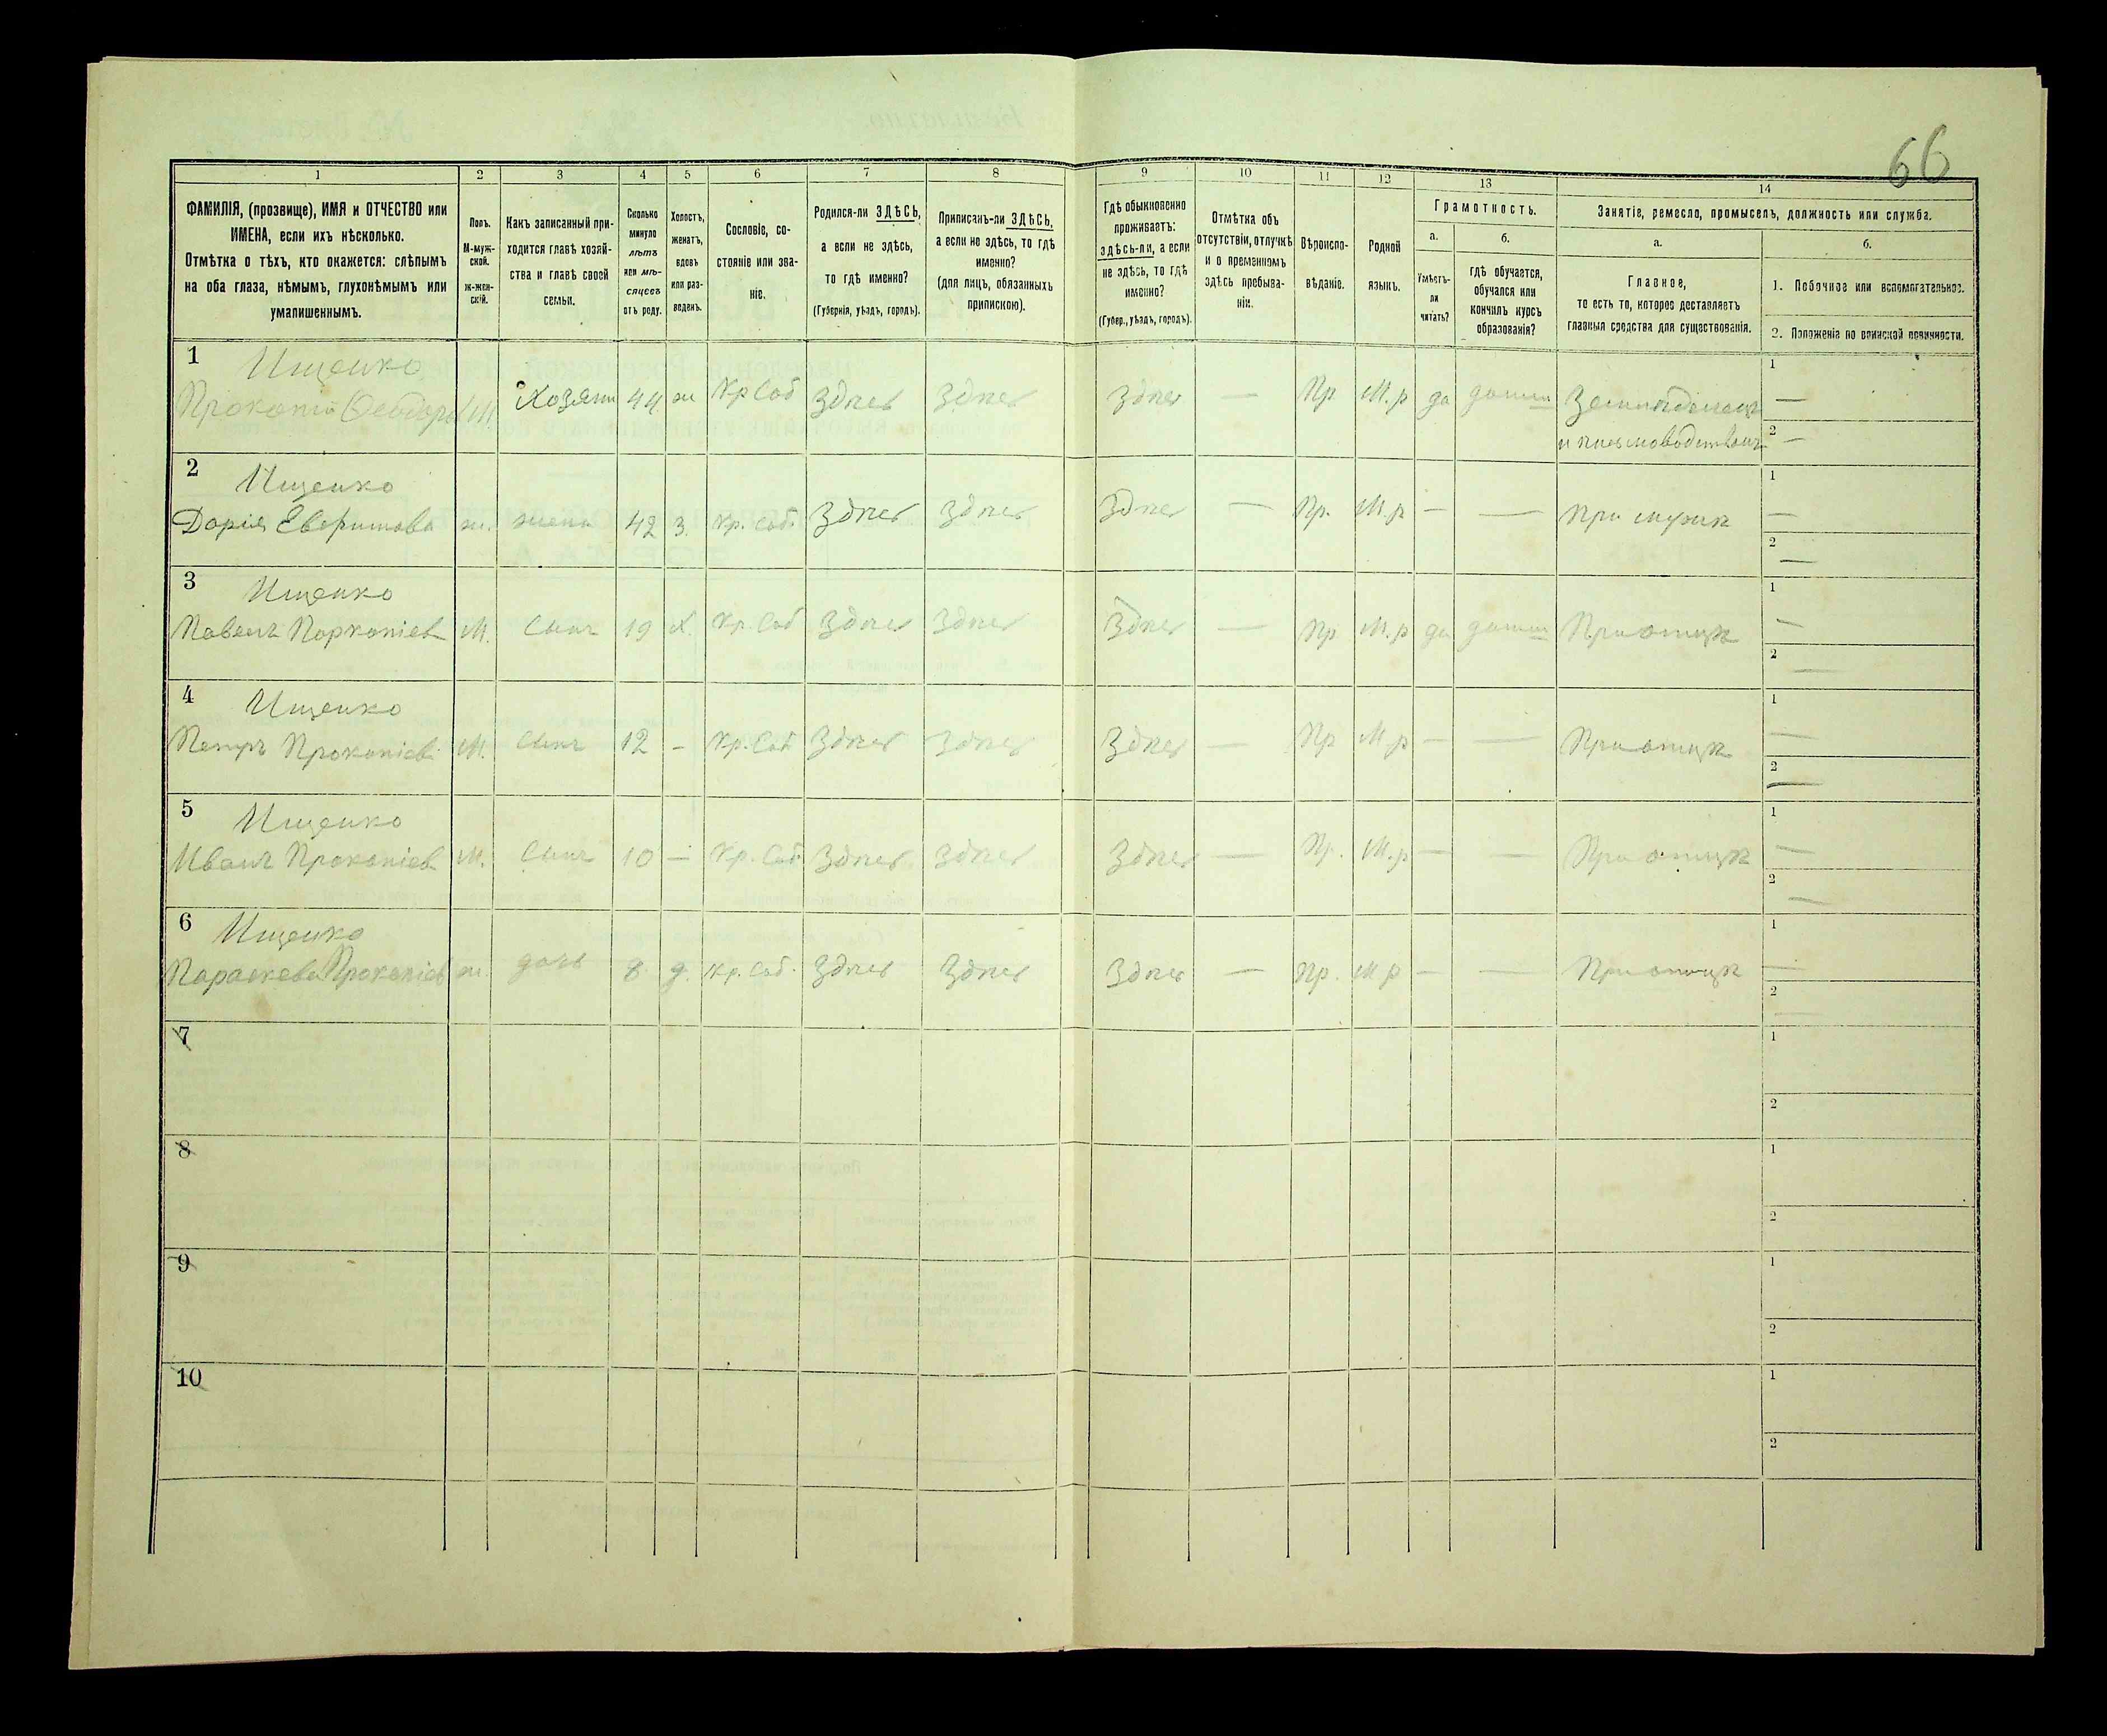 66
1 2 3 4 5 6 7 8 9 10 11 12 13 14
ФАМИЛІЯ, (прозвище), ИМЯ и ОТЧЕСТВО или
ИМЕНА, если ихъ нѣсколько.
Отмѣтка о тѣхъ, кто окажется: слѣпымъ
на оба глаза, нѣмымъ, глухонѣмымъ или
умалишеннымъ.
Полъ.
М-муж-
ской.
ж-жен-
скій.
Какъ записанный при-
ходится главѣ хозяй-
ства и главѣ своей
семьи.
Сколько
минуло
лѣтъ
или мѣ-
сяцевъ
отъ роду.
Холостъ,
женатъ,
вдовъ
или раз-
веденъ.
Сословіе, со-
стояніе или зва-
ніе.
Родился-ли ЗДѢСЬ,
а если не здѣсь,
то гдѣ именно?
(Губернія, уѣздъ, городъ).
Приписанъ-ли ЗДѢСЬ,
а если не здѣсь, то гдѣ
именно?
(для лицъ, обязанныхъ
припискою).
Гдѣ обыкновенно
проживаетъ:
здѣсь-ли, а если
не здѣсь, то гдѣ
именно?
(Губер., уѣздъ, городъ).
Отмѣтка объ
отсутствіи, отлучкѣ
и о временномъ
здѣсь пребыва-
ніи.
Вѣроиспо-
вѣданіе.
Родной
языкъ.
Грамотность.
а.
Умѣетъ-
ли
читать?
б.
гдѣ обучается,
обучался или
кончилъ курсъ
образованія?
Занятіе, ремесло, промыселъ, должность или служба.
а.
Главное,
то есть то, которое доставляетъ
главныя средства для существованія.
б.
1. Побочное или вспомогательное.
2. Положеніе по воинской повинности.
1 Ищенко 1
Прокопій Ѳеодоров М. Хозяин 44 ж Кр Соб Здпсь Здпсь Здпсь — Пр М.р да Земледелецъ —
2 —
2 Ищенко 1
Дарія ж. жена 42 з. Кр. Соб. Здпсь Здпсь Здпсь — Пр. М.р — — При мужп —
2 —
3 Ищенко 1
Павелъ Поркопіев М. Сынъ 19 х. Кр. Соб Здпсь Здпсь Здпсь — Пр М.р да При отцп —
2 —
4 Ищенко 1
Петръ Прокопіев М. Сынъ 12 — Кр. Соб Здпсь Здпсь Здпсь — Пр М р — — При отцп —
2 —
5 Ищенко 1
Иванъ Прокопіев М. Сынъ 10 — Кр. Соб. Здпсь Здпсь Здпсь — Пр. М.р — — При отцп —
2 —
6 Ищенко 1
Параскева Прокопіев ж. дочь 8 д. Кр. Соб. Здпсь Здпсь Здпсь — Пр. М р — — При отцп —
2
7 1
2
8 1
2
9 1
2
10 1
2